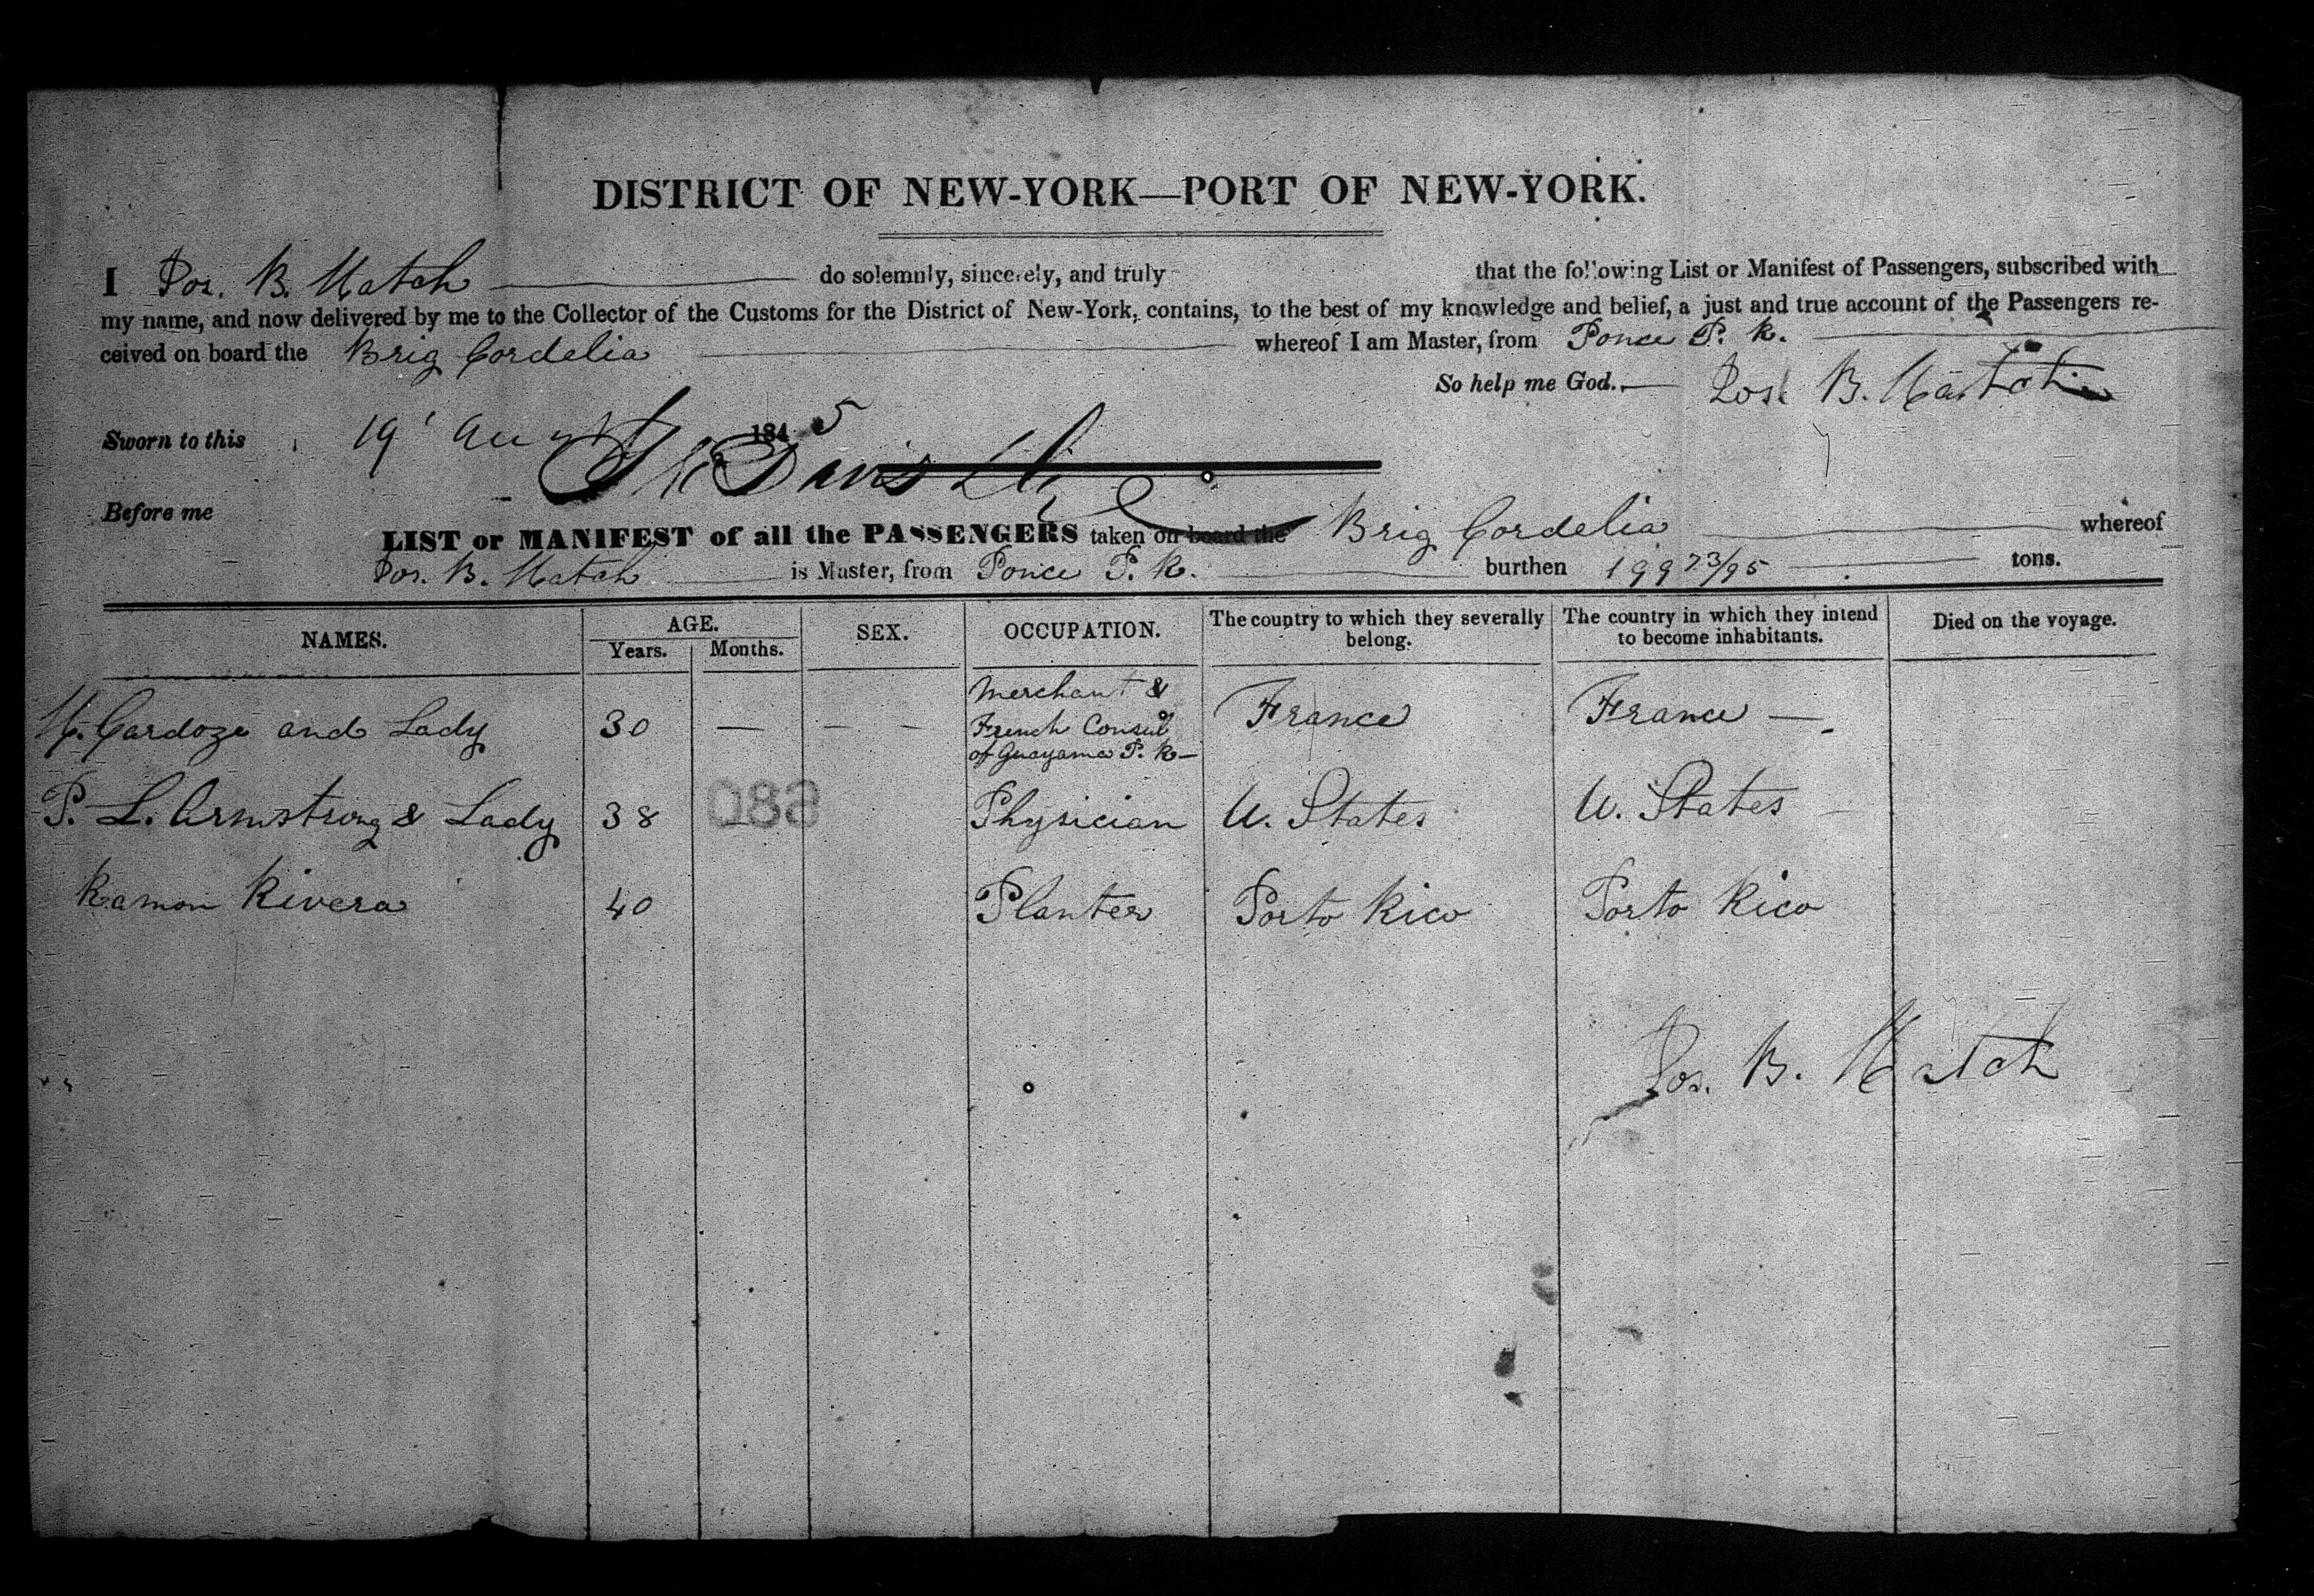 DISTRICT OF NEW-YORK—PORT OF NEW-YORK.
I Jos. B. Hatch do solemnly, sincerely, and truly that the following List or Manifest of Passengers, subscribed with
my name, and now delivered by me to the Collector of the Customs for the District of New-York, contains, to the best of my knowledge and belief, a just and true account of the Passengers re-
ceived on board the Brig Cordelia whereof I am Master, from Ponce P. R.
So help me God. Jos. B. Hatch
Sworn to this 19 Augt 1845
Before me Davis
LIST or MANIFEST of all the PASSENGERS taken on board the Brig Cordelia whereof
Jos. B. Hatch is Master, from Ponce P. R. burthen 199 73/95 tons.
NAMES. AGE. SEX. OCCUPATION. The country to which they severally belong. The country in which they intend to become inhabitants. Died on the voyage.
Years. Months.
H. Cardoze and Lady 30 — — — Merchant & French Consul of Guayama P. R— France France —
P. L. Armstrong & Lady 38 — Physician U. States U. States
Ramon Rivera 40 Planter Porto Rico Porto Rico
Jos. B. Hatch